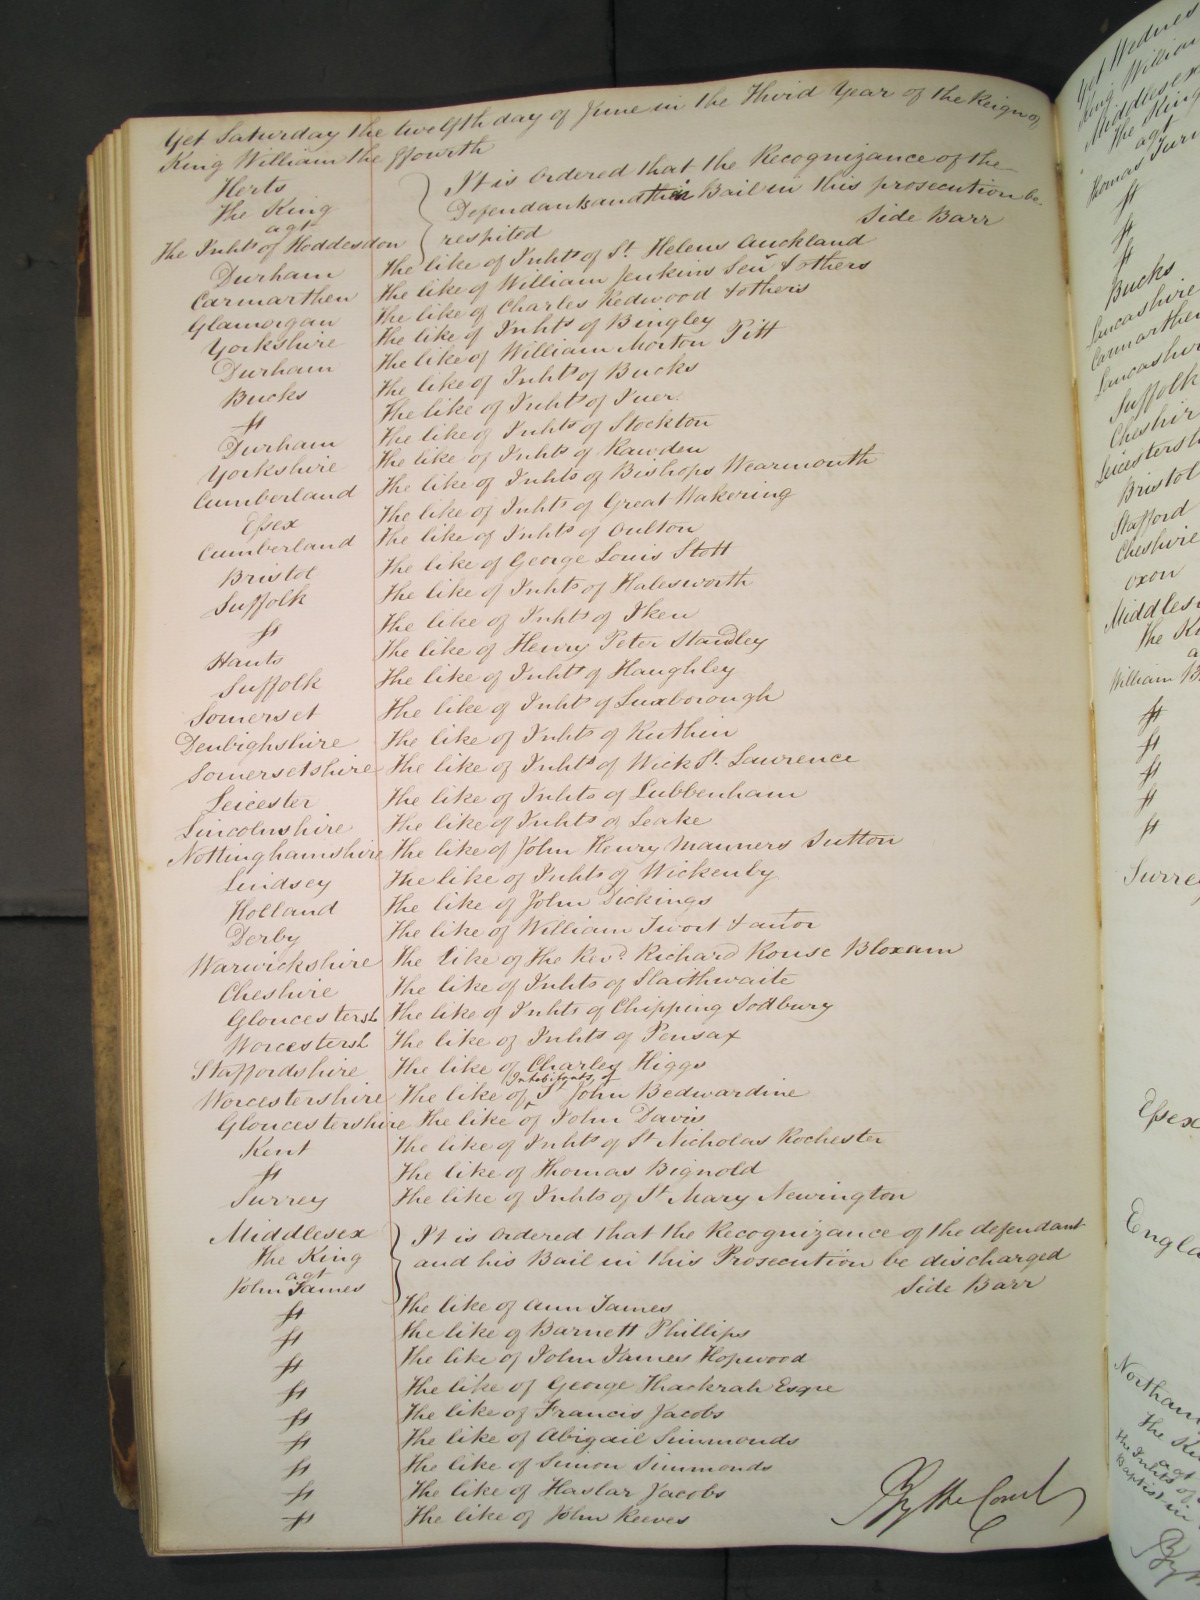 Yet Saturday the twelfth day of June in the Third Year of the Reign of
King William the ffourth
Herts
The King
agt
The Inhts of Hoddesdon
It is Ordered that the Recognizance of the
Defendants and their Bail in this prosecution be
respited
Side Barr
Durham The like of Inhts of St. Helens Auckland
Carmarthen The like of William Jenkins Senr & others
Glamorgan The like of Charles Redwood & others
Yorkshire The like of Inhts of Bingley
Durham The like of William Morton Pitt
Bucks The like of Inhts of Bucks
ft The like of Inhts of Iver
Durham The like of Inhts of Stockton
Yorkshire The like of Inhts of Rawden
Cumberland The like of Inhts of Bishops Wearmouth
Essex The like of Inhts of Great Wakering
Cumberland The like of Inhts of Oulton
Bristol The like of George Louis Stott
Suffolk The like of Inhts of Halesworth
ft The like of Inhts of Iken
Hants The like of Henry Peter Standley
Suffolk The like of Inhts of Haughley
Somerset The like of Inhts of Luxborough
Denbighshire The like of Inhts of Ruthin
Somersetshire The like of Inhts of Wick St. Lawrence
Leicester The like of Inhts of Lubbenham
Lincolnshire The like of Inhts of Leake
Nottinghamshire The like of John Henry Manners Sutton
Lindsey The like of Inhts of Wickenby
Holland The like of John Dickings
Derby The like of William Twort & anor
Warwickshire The like of The Revd. Richard Rouse Bloxam
Cheshire The like of Inhts of Slaithwaite
Gloucestersh The like of Inhts of Chipping Sodbury
Worcestersh The like of Inhts of Pensax
Staffordshire The like of Charley Higgs
Inhabitants of
Worcestershire The like of St John Bedwardine
Gloucestershire The like of John Davis
Kent The like of Inhts of St Nicholas Rochester
ft The like of Thomas Bignold
Surrey The like of Inhts of St Mary Newington
Middlesex
The King
agt
John James
It is Ordered that the Recognizance of the defendant
and his Bail in this Prosecution be discharged
Side Barr
ft The like of Ann James
ft The like of Barnett Phillips
ft The like of John James Hopwood
ft The like of George Thackrah Esqre
ft The like of Francis Jacobs
ft The like of Abigail Simmonds
ft The like of Simon Simmonds
ft The like of Haslar Jacobs
ft The like of John Reeves
By the Court
Yet Wednes
King William
Middlesex
The King
agt
Thomas Turn
ft
ft
ft
Bucks
Lancashire
Carmarthen
Lancashir
Suffolk
Cheshir
Leicestersh
Bristol
Stafford
Cheshire
Oxon
Middles
The Ki
a
William B
ft
ft
ft
ft
ft
Surre
Essex
Engla
Northam
The Ki
agt
The Inhts of
Baptist in
By th